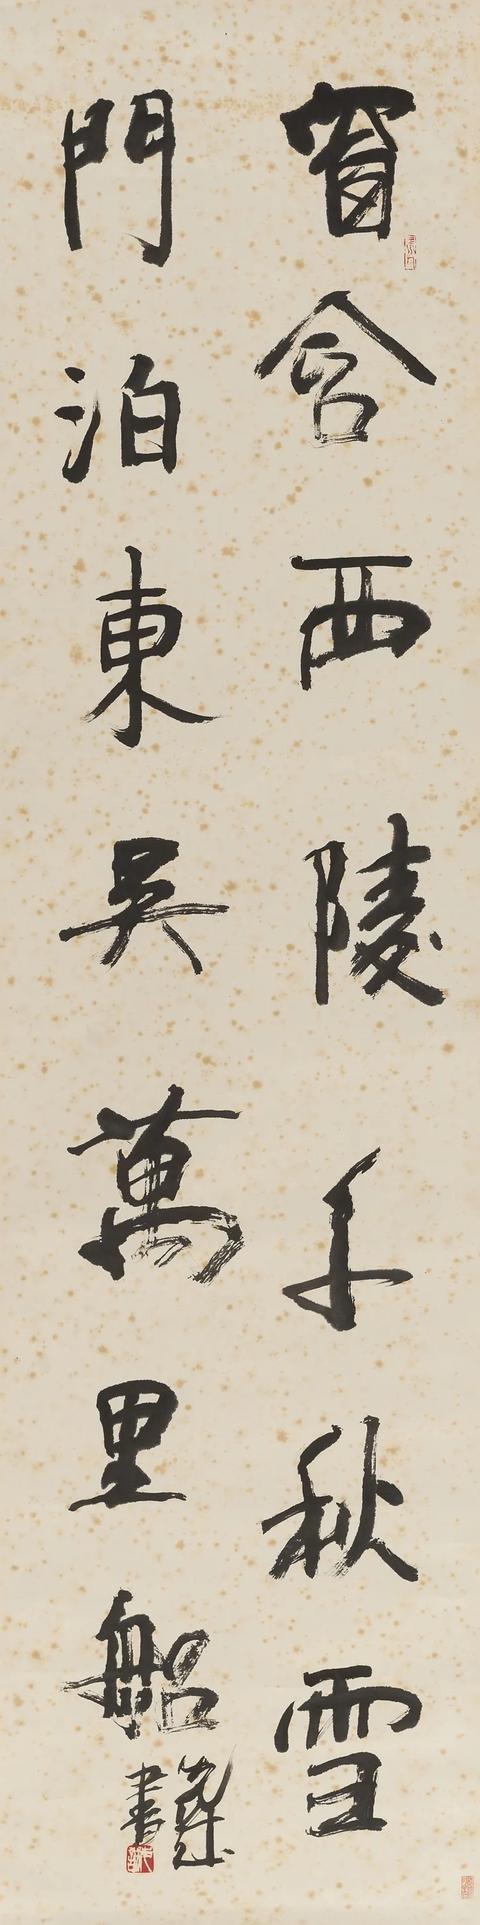 窗含西陵千秋雪
門泊東吳萬里船
書